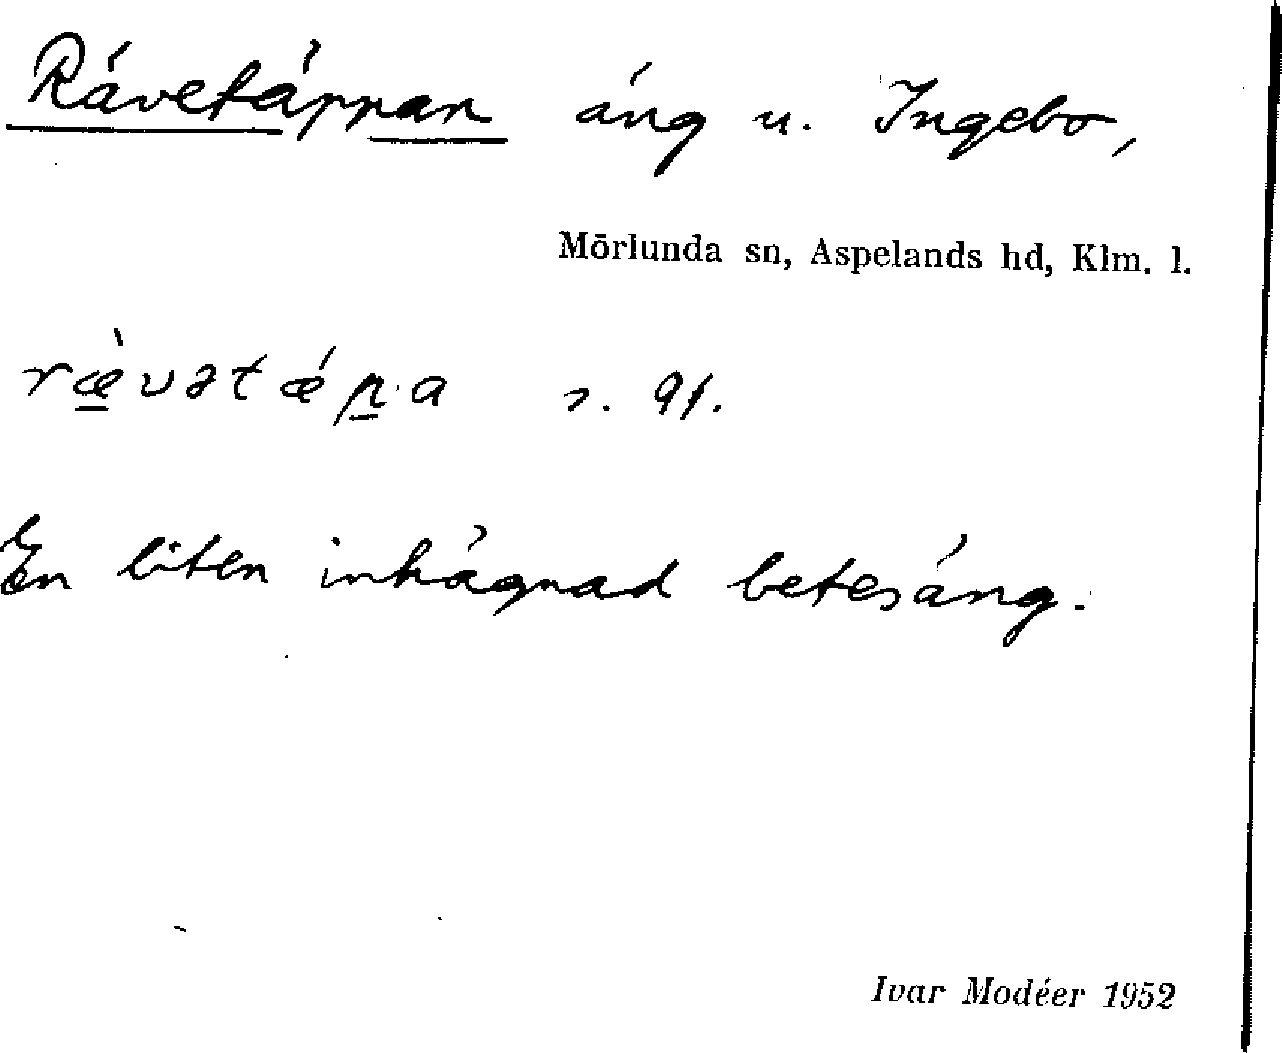 Rävetäppan äng u. Ingebo,
Mörlunda sn, Aspelands hd, Klm. l.
ræ̀vətǽp̱a s. 91.
En liten inhägnad betesäng.
Ivar Modéer 1952